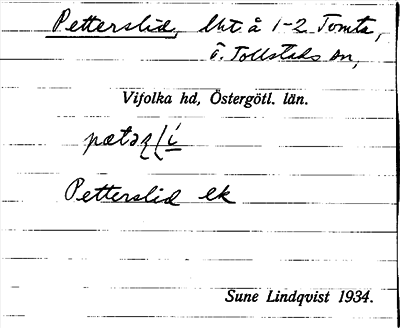 Petterslid, lht. å 1-2 Tomta,
Ö. Tollstads sn,
Vifolka hd, Östergötl. län.
Petterslid ek
Sune Lindqvist 1934.